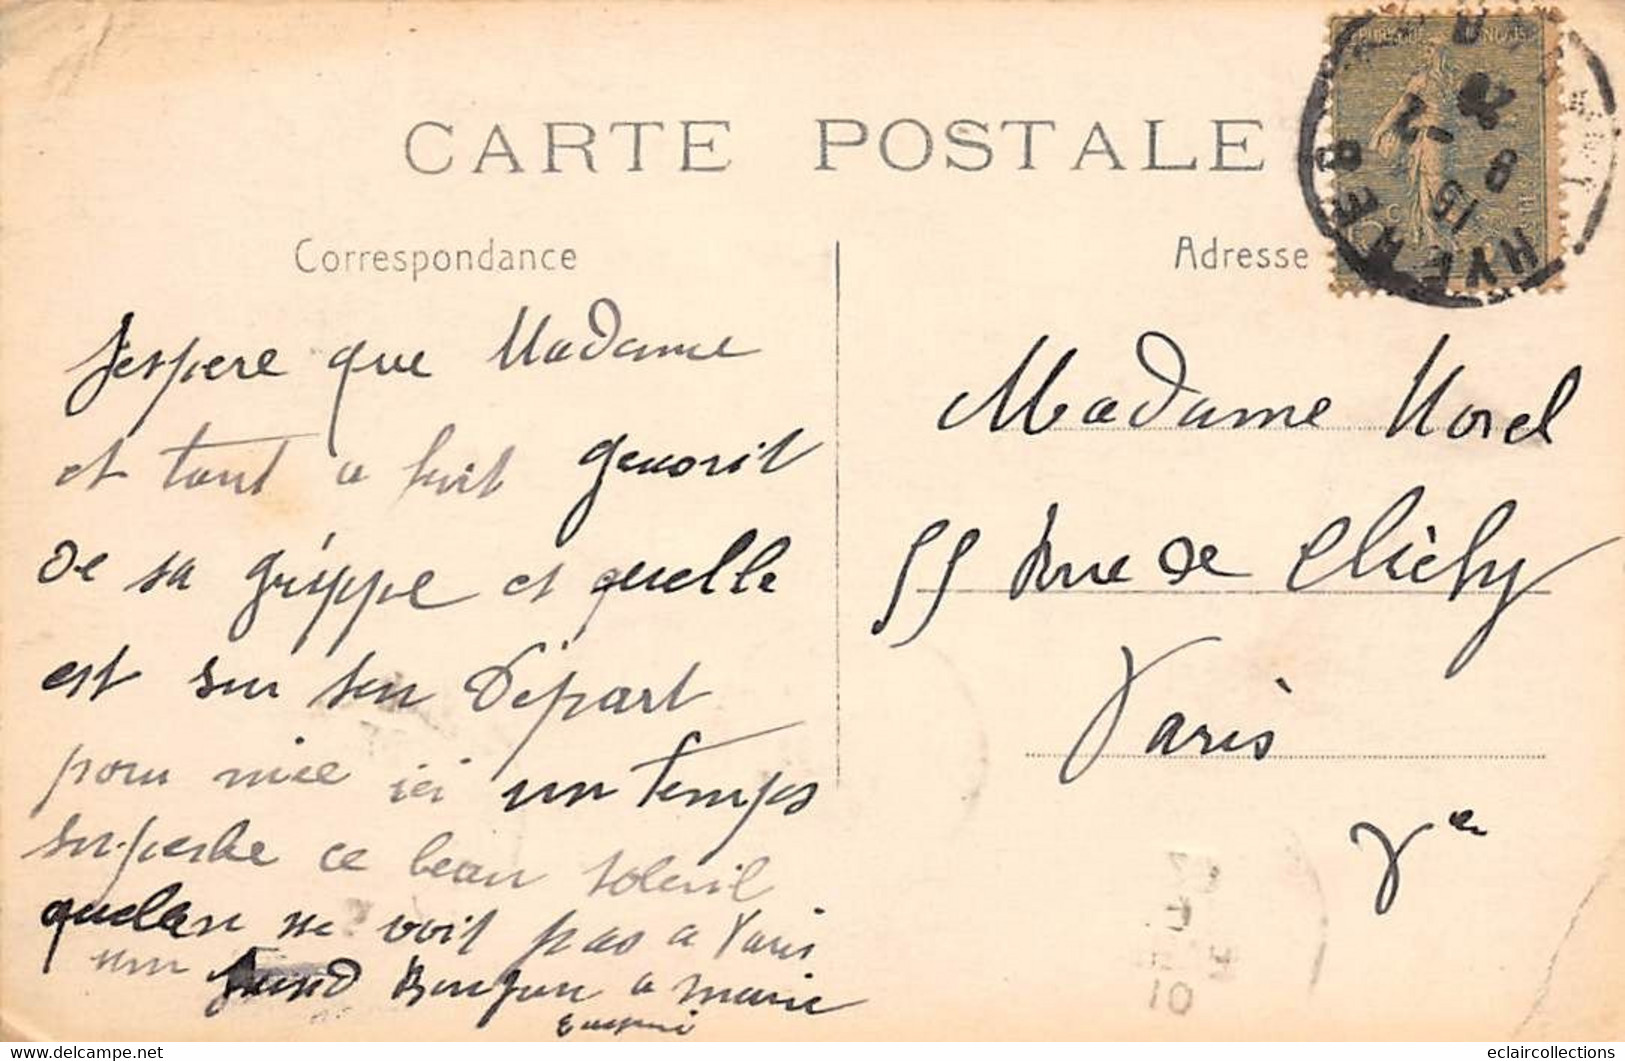 CARTE POSTALE
Correspondance
Adresse
HYERES
8
19
J'espere que Madame
et tout a fait guerrit
de sa grippe et quelle
est sur son Départ
pour nice ici un temps
superbe ce beau soleuil
quelon ne voit pas a Paris
un grand Bonjour a marie
Eugeni
Madame Morel
55 Rue de Clichy
Paris
10
eclaircollections
https://www.delcampe.net